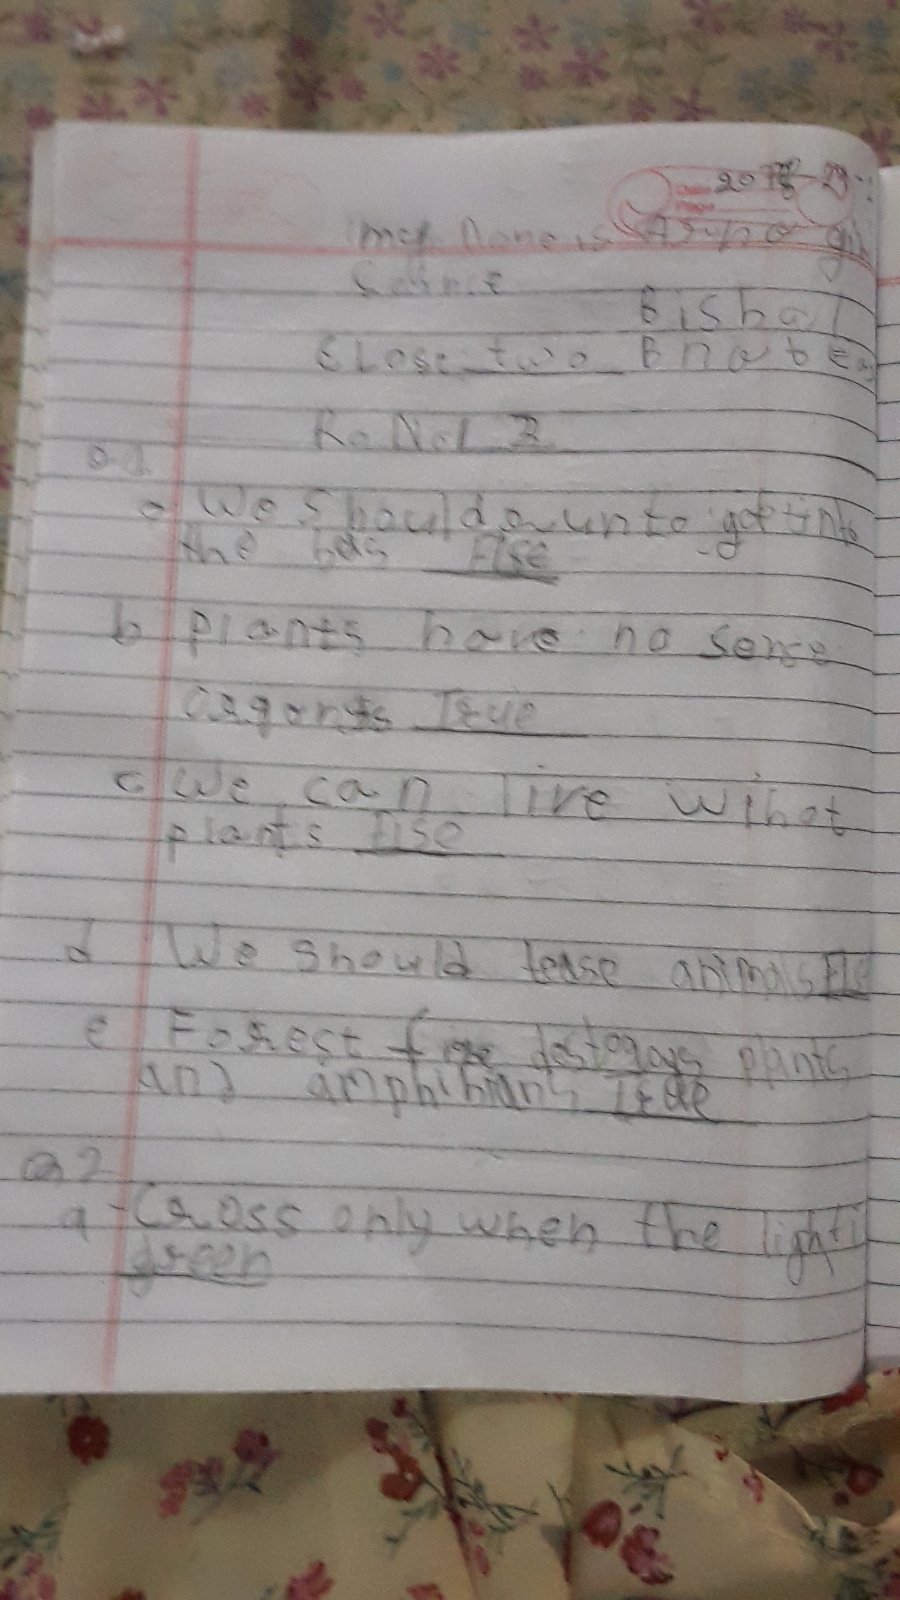 my Name is
Science
Bishal
Close two
Ro Nol 2
a we should to get into
the bas Flse
b plants have no sence
Oregants True
c. we can live wihot
plants Flse
d We should tease animals Flse
e Forest fire destorays plants
and amphibians True
Q2
a - Cross only when the light i
green